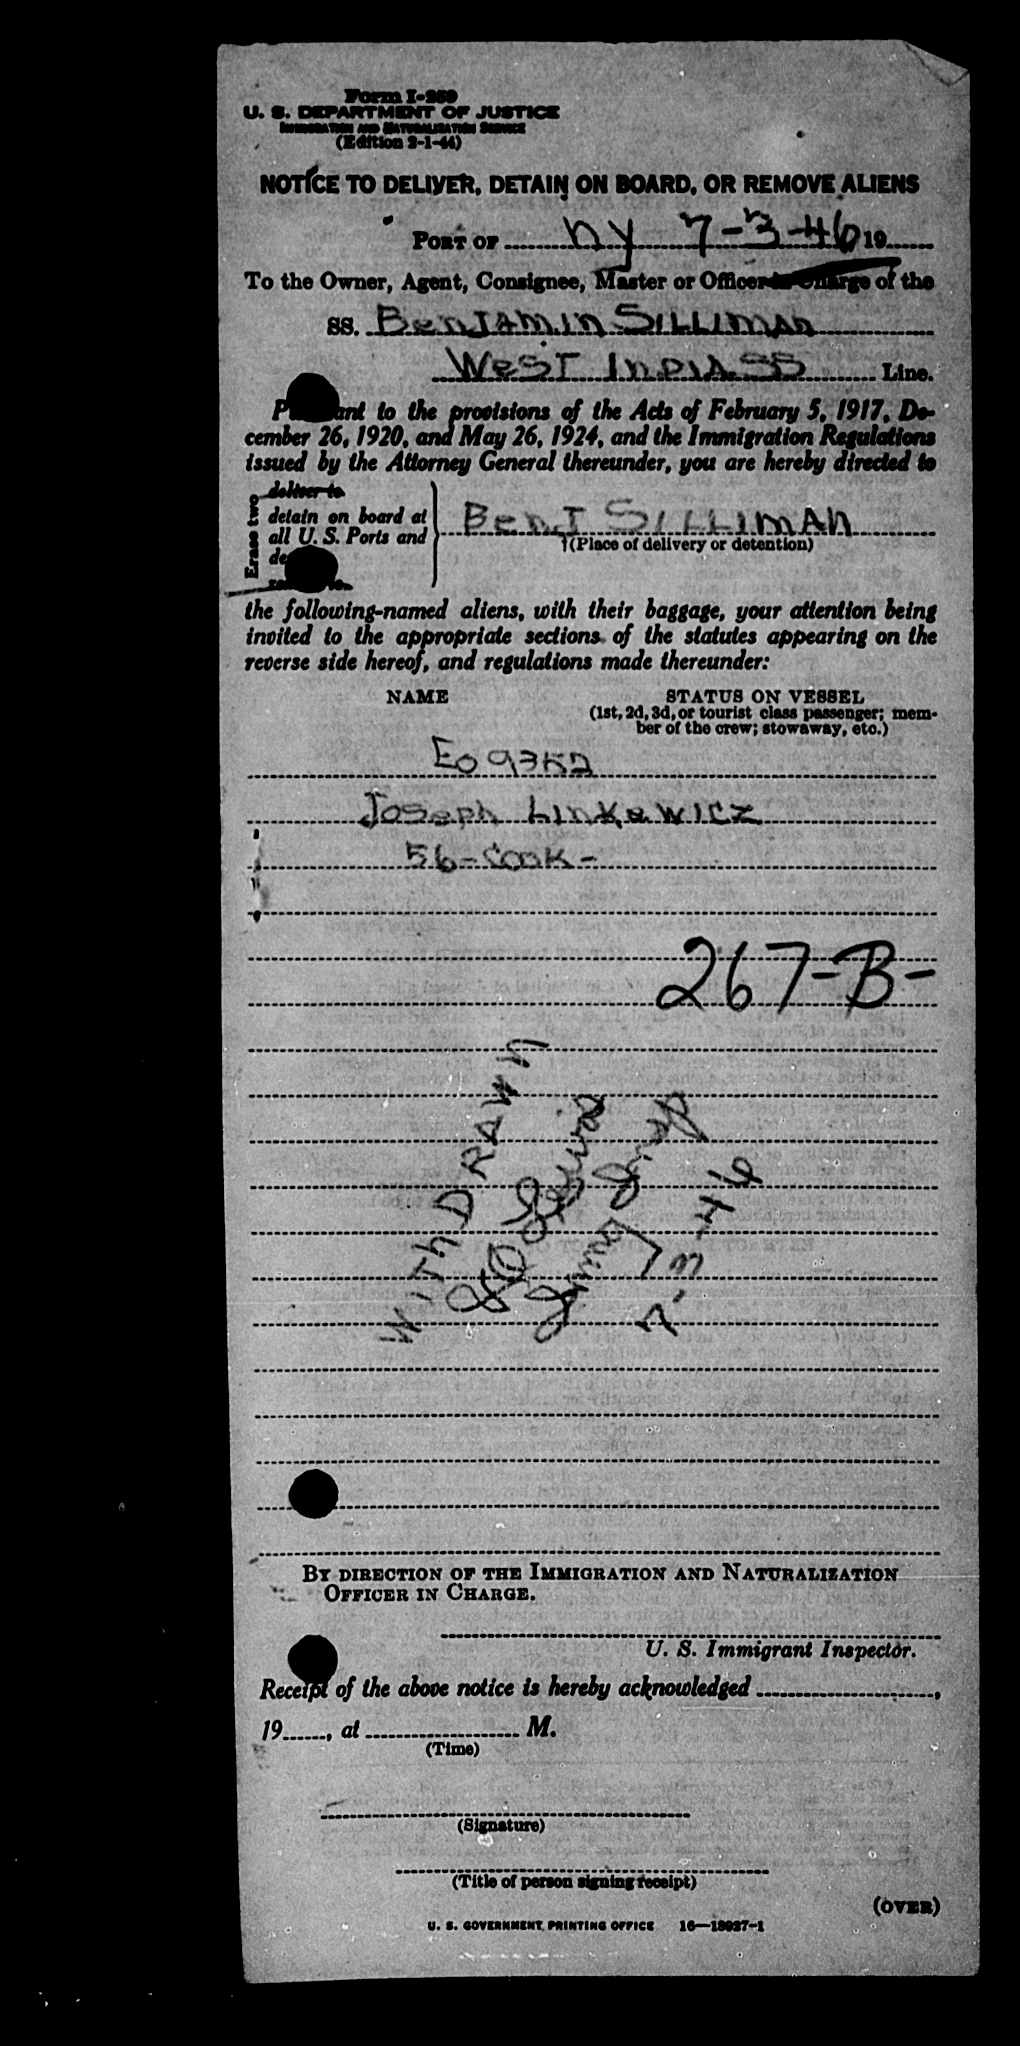 Form I-259
U. S. DEPARTMENT OF JUSTICE
IMMIGRATION AND NATURALIZATION SERVICE
(Edition 2-1-44)
NOTICE TO DELIVER, DETAIN ON BOARD, OR REMOVE ALIENS
PORT OF ny 7-3-46 19
To the Owner, Agent, Consignee, Master or Officer in Charge of the
SS. BENJAMIN SILLIMAN
WEST INDIA SS Line.
Pursuant to the provisions of the Acts of February 5, 1917, De-
cember 26, 1920, and May 26, 1924, and the Immigration Regulations
issued by the Attorney General thereunder, you are hereby directed to
Erase two
deliver to
detain on board at
all U. S. Ports and
BENJ SILLIMAN
(Place of delivery or detention)
the following-named aliens, with their baggage, your attention being
invited to the appropriate sections of the statutes appearing on the
reverse side hereof, and regulations made thereunder:
NAME STATUS ON VESSEL
(1st, 2d, 3d, or tourist class passenger; mem-
ber of the crew; stowaway, etc.)
EO 9352
Joseph Linkewicz
56-Cook-
267-B-
WITHDRAWN
7-3-46
BY DIRECTION OF THE IMMIGRATION AND NATURALIZATION
OFFICER IN CHARGE.
U. S. Immigrant Inspector.
Receipt of the above notice is hereby acknowledged ,
19 , at M.
(Time)
(Signature)
(Title of person signing receipt)
(OVER)
U. S. GOVERNMENT PRINTING OFFICE 16—18927-1